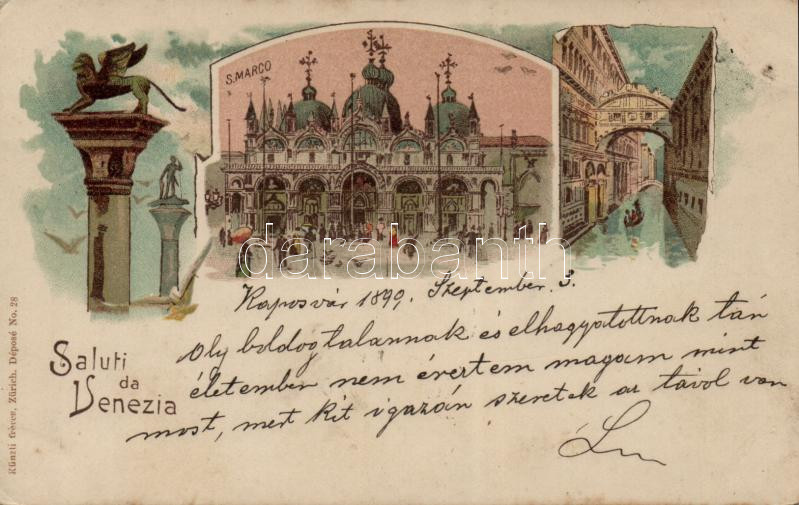 S. MARCO
darabanth
Kaposvár 1899. Szeptember 3.
oly boldogtalannak és elhagyatottnak tán
életemben nem éreztem magam mint
most, mert kit igazán szeretek az távol van
Saluti
da
Venezia
Künzli frères, Zürich. Déposé No. 28